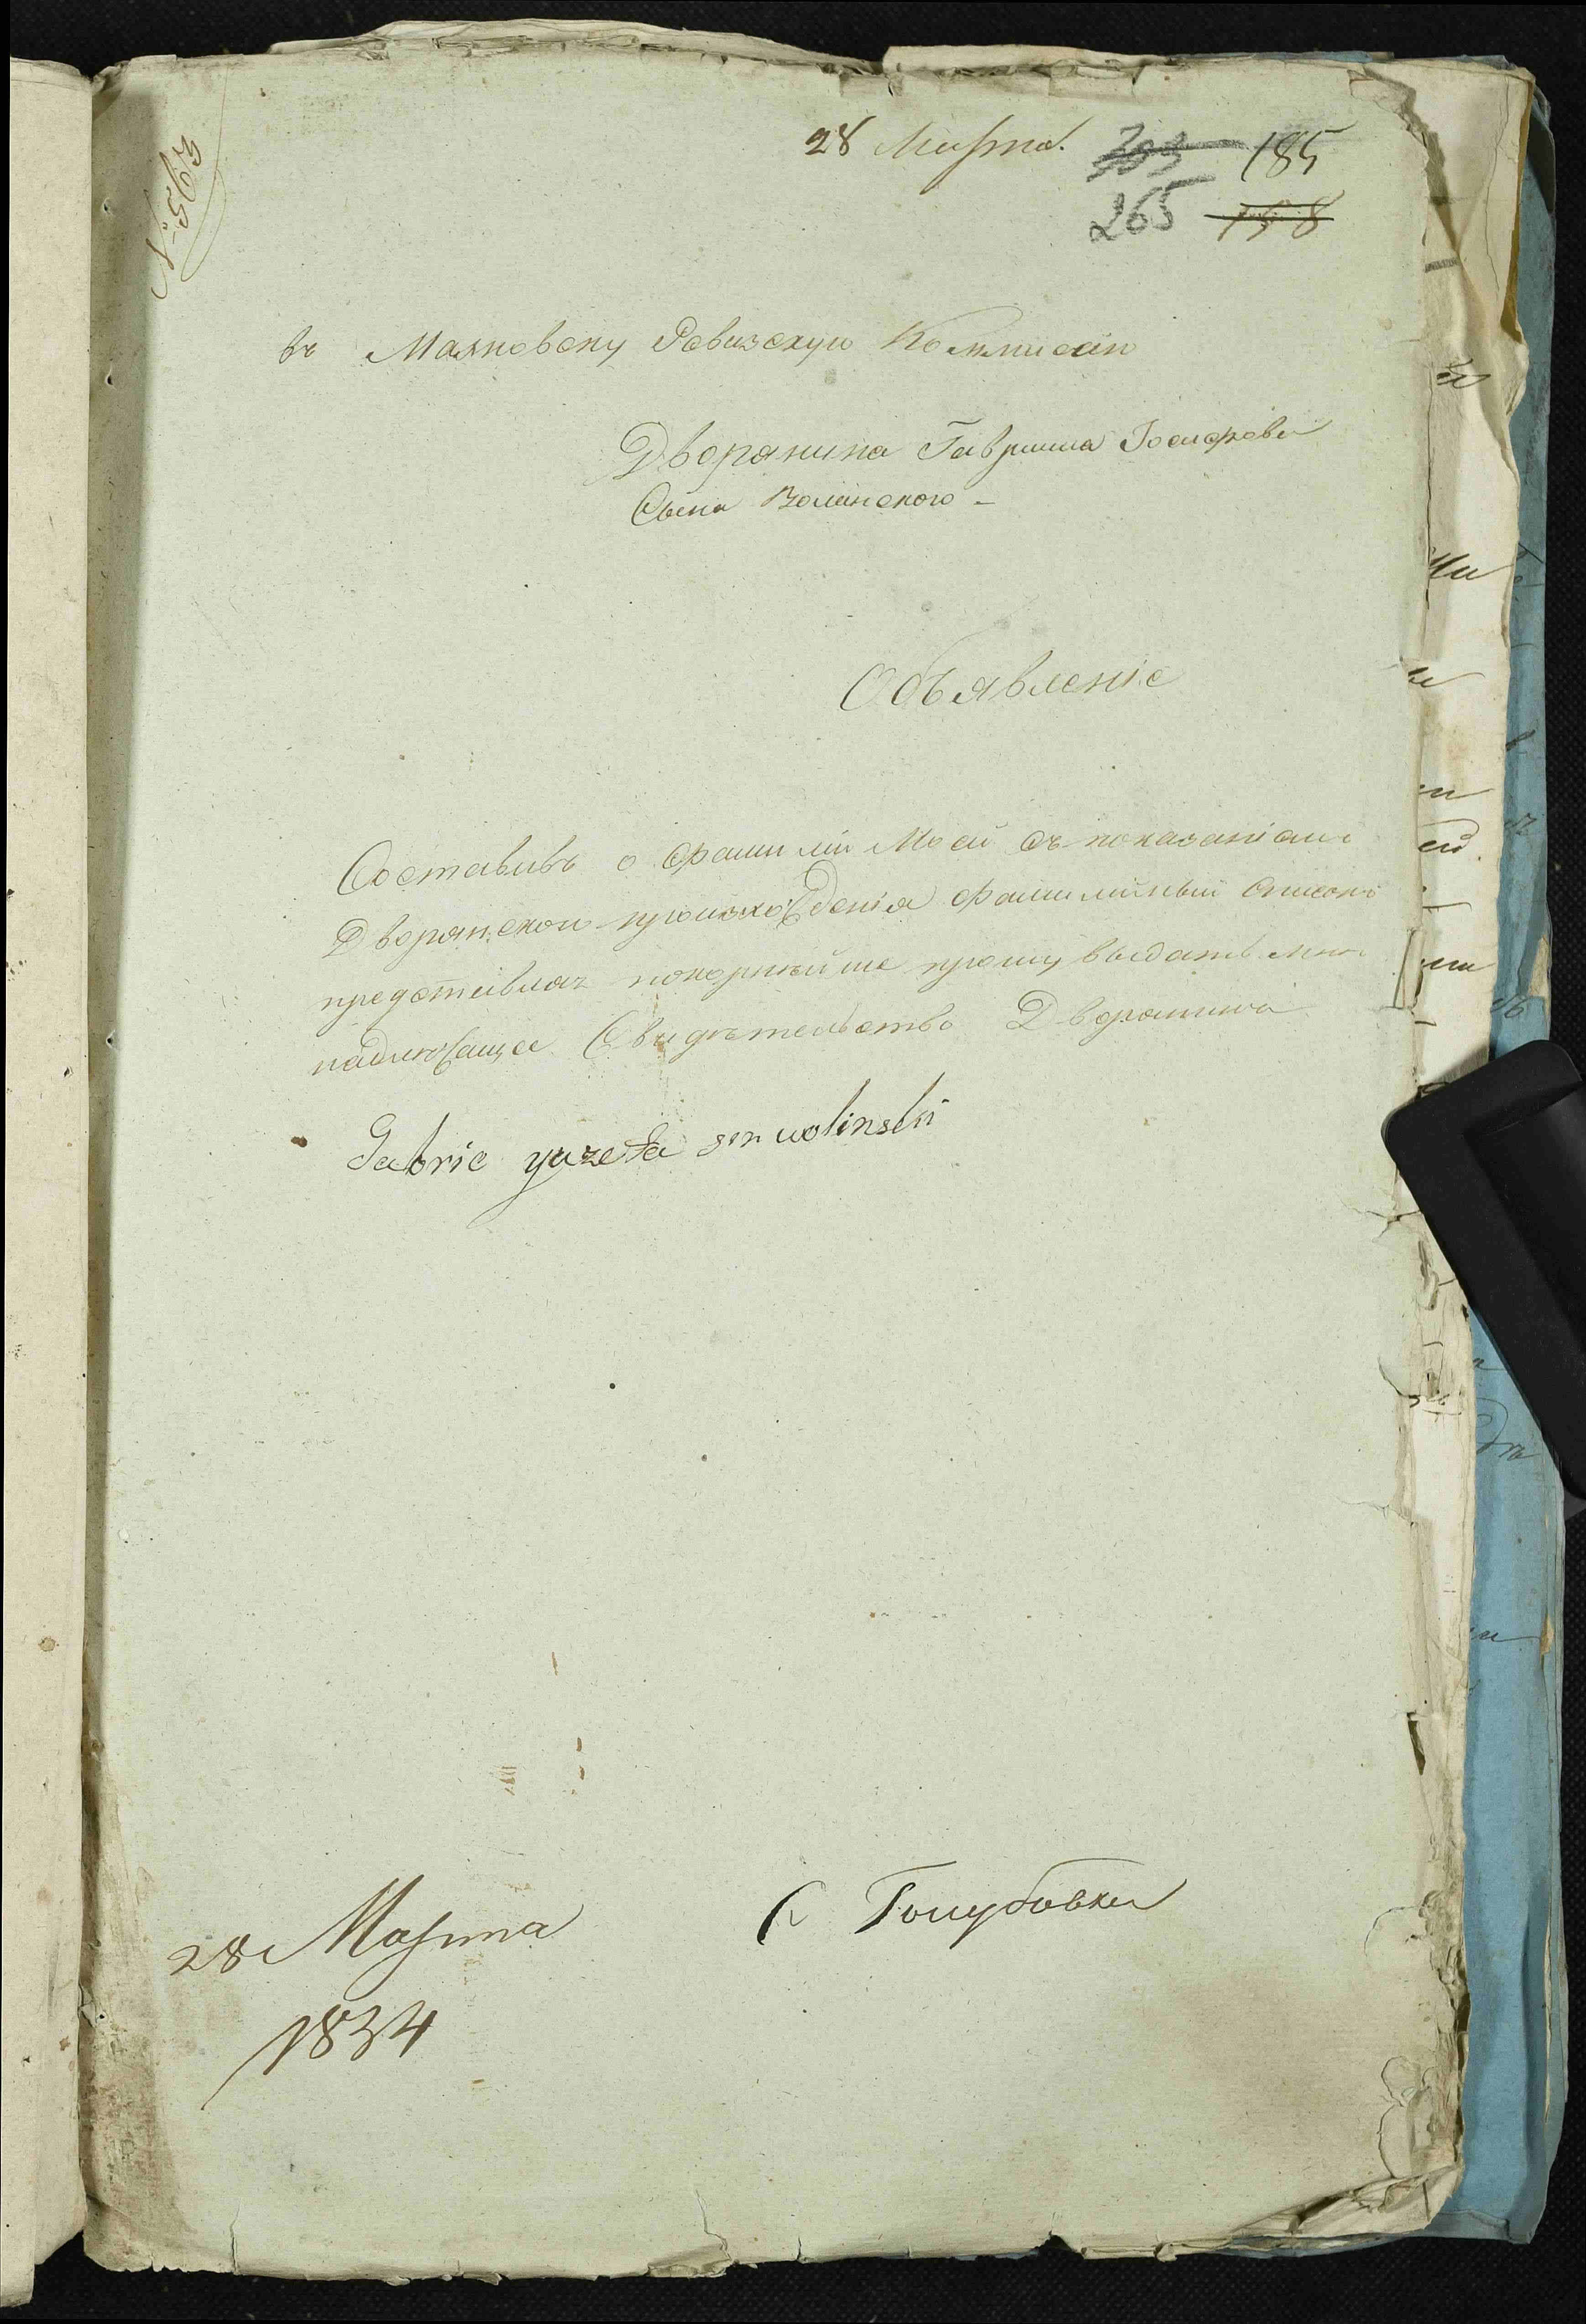 № 563
28 Марта.
185
265 158
въ Маяновску Ревизскую Коммисію
Дворянина Гавриила Іосифова
Сына Волинского -
Объявленіе
Составивъ о фамиліи Моей съ показаніемъ
Дворянского произхожденія фамилійный списокъ
предствивляя покорнѣйше прошу выдать мнѣ
надлюжащее Свидѣтельство Дворянина
Gabrie yuzefa sen wolinski
28 Марта
С Голубовка
1834